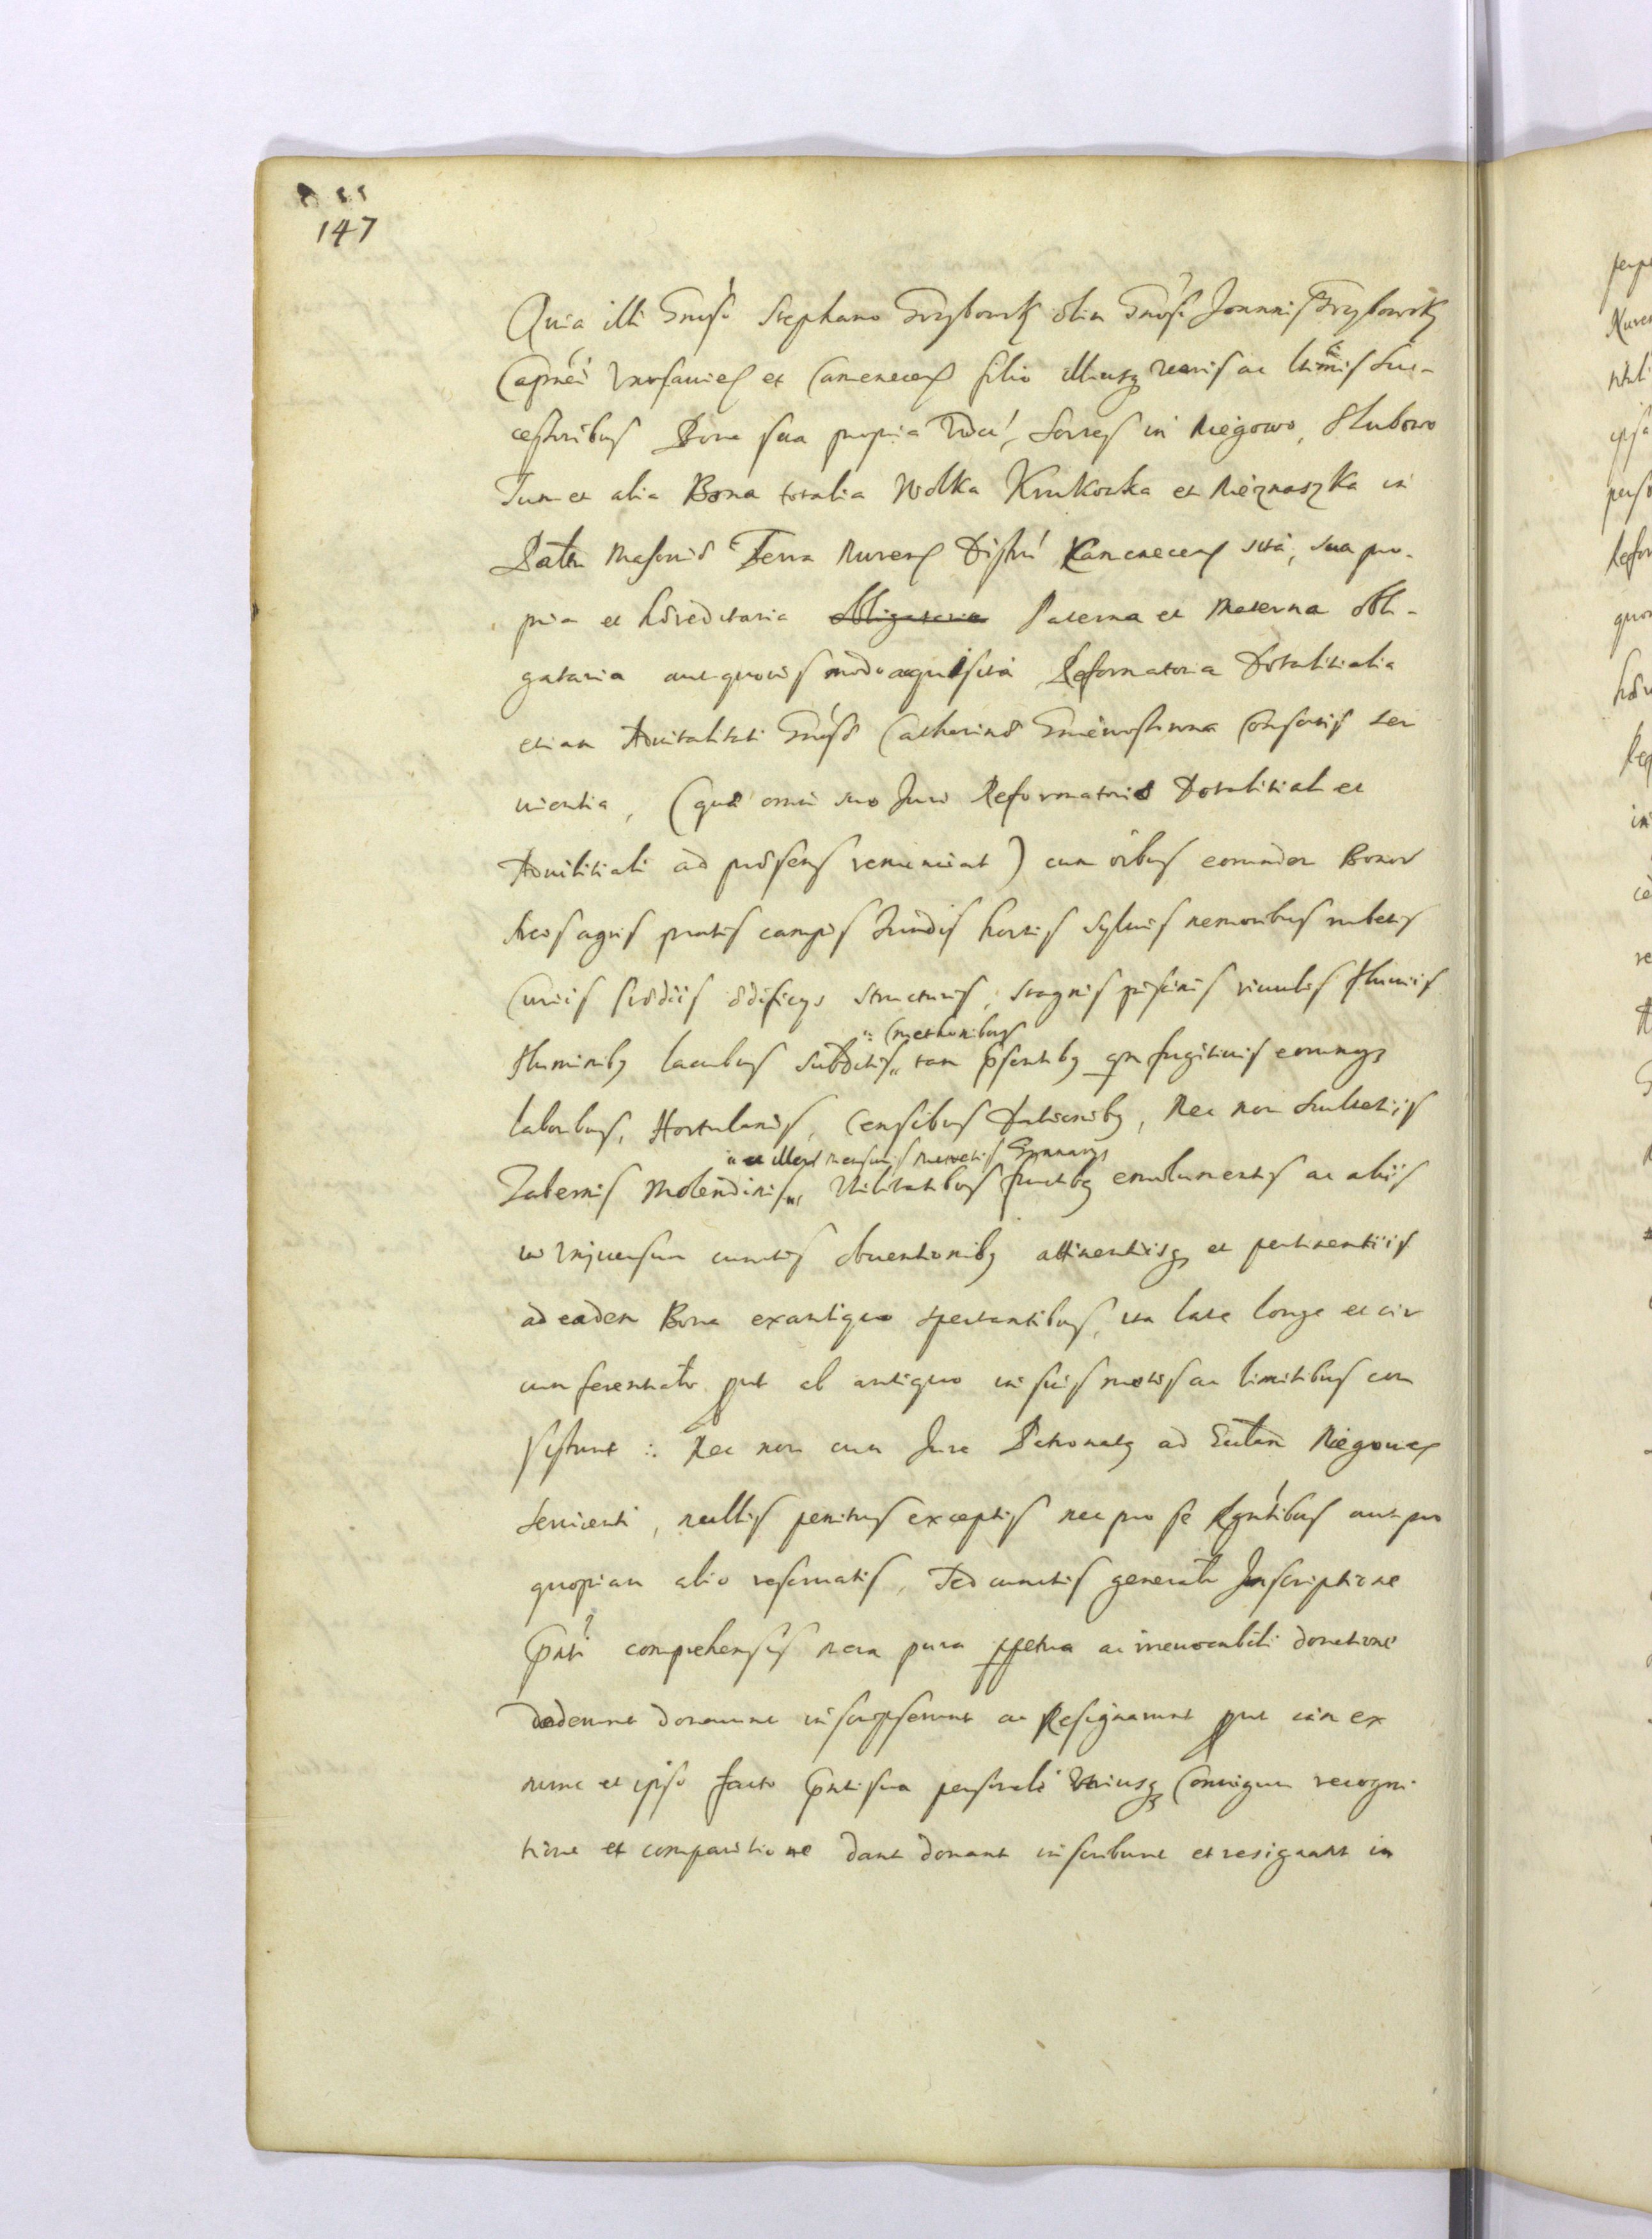 147
Quia illi Gnoso Stephano Grzybowsk olim Gnosi Joannis Grzybowsk
Capnei et Camenecen filio illiusq veris ac ltimis Suc-
cessoribus Bona sua propria vdct, Sortes in Niegowo, Slubowo
Tum et alia Bona totalia Wolka Krukoska et in
Palttu Masouiæ Terra Nuren Distri Kamenecen sita, sua pro-
pria et hæreditaria obligatoria Paterna et Materna obli-
gatoria aut quouis modo aquisita Reformatoria Dotalitialia
etiam Aduitalitati Gnosæ Catherinæ Consortis ser
uientia, (quæ omni suo Juri Reformatorio Dotalitiali et
Aduitilitiali ad præsens renunciat) cum oibus eorundem Bonor
agris pratis campis fundis hortis syluis nemoribus rubetis
Curiis prædiis ædificys structuris, stagnis piscinis riuulis fluuiis
": Cmethonibus
fluminibq lacubus subditis " tam psentibq qm fugitiuis eorumqq
laboribus, Hortulanis, Censibus Dationibq, Nec non Scultetiis
" et illor mensuris Granarys
Tabernis Molendinis " Vtilitatibus fructibq emolumentis ac aliis
in vniuersum cunctis obuentionibq attinentiisq et pertinentiis
ad eadem Bona exantiquo spectantibus, ita late longe et cir
cumferentialr put ab antiquo in suis metis ac limitibus con
sistunt :. Nec non cum Jure Patronatq ad Eccltam Niegouien
seruienti, nullis penitus exceptis nec pro se aut pro
quopiam alio reseruatis, Sed cunctis generalr Inscriptione
pnti comprehensis mera pura ppetua ac irreuocabili donatione
dederunt donarunt inscripserunt ac Resignarunt put iam ex
nunc et ipso facto pnti sua personali vtriusq Coniugum recogni
tione et comparitione dant donant inscribunt et resignant in